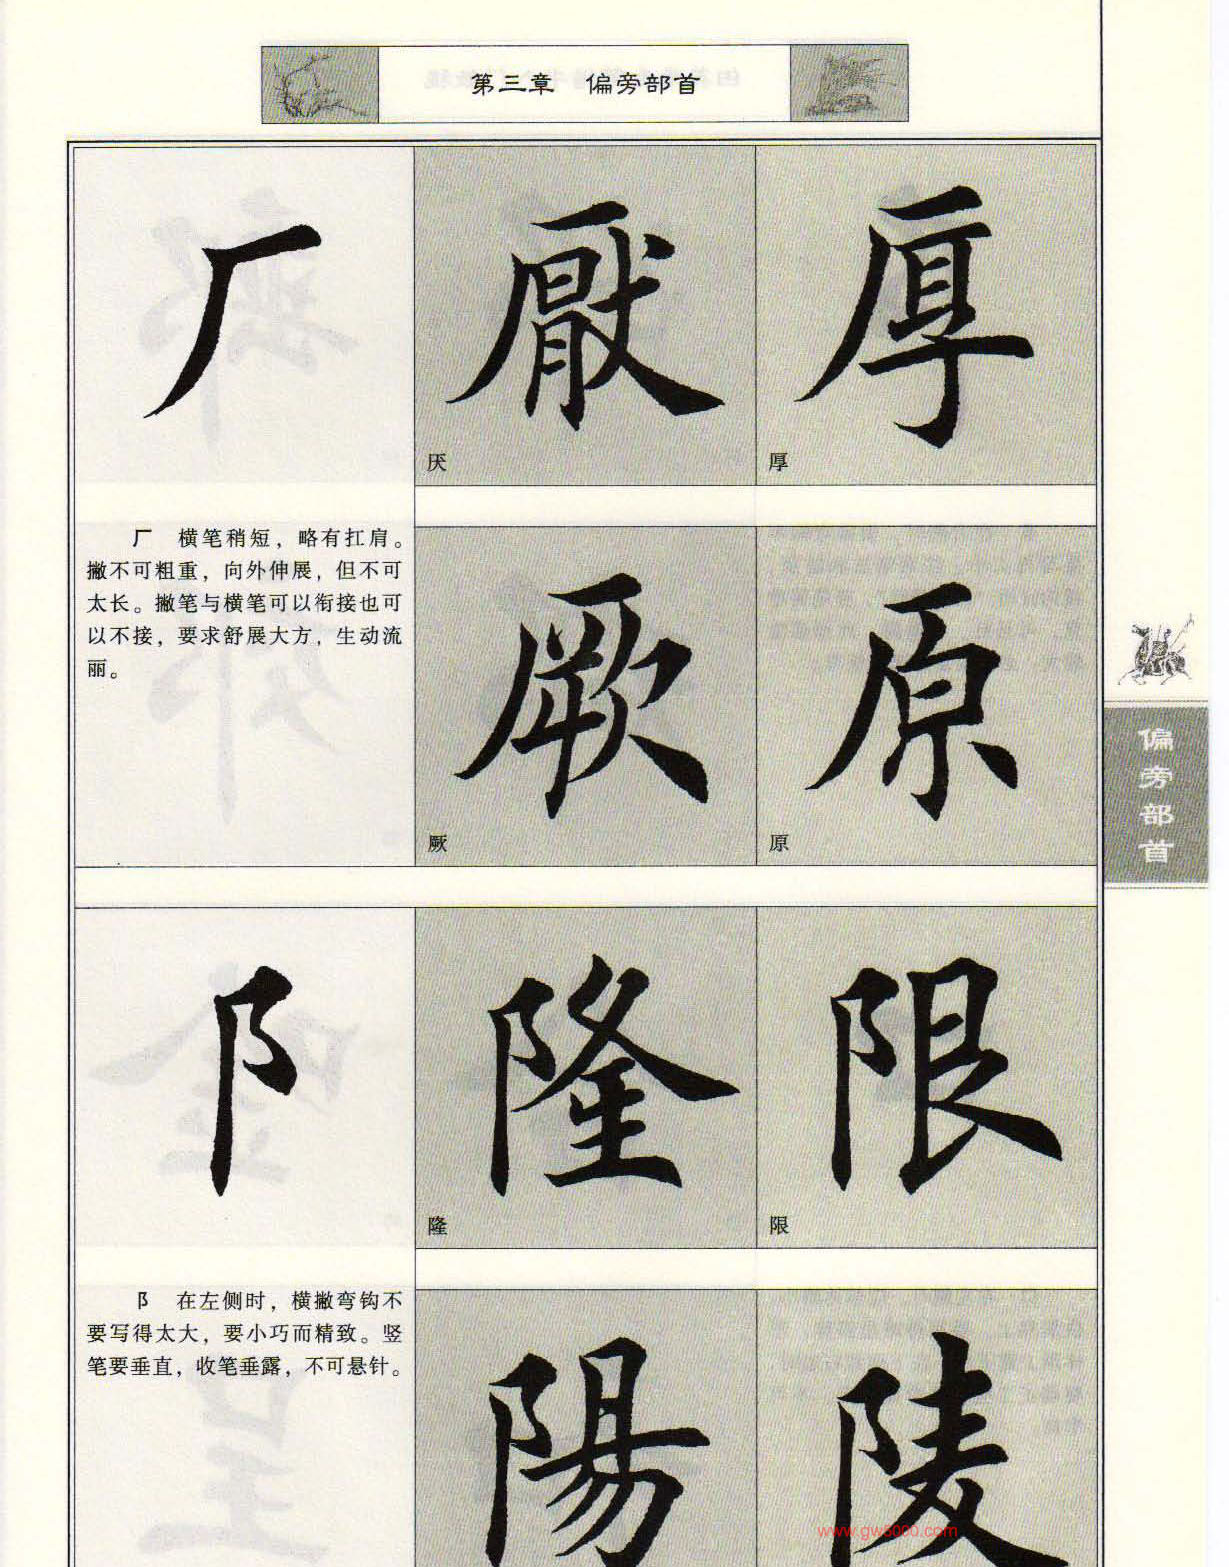 第三章 偏旁部首
厂 厭 厚
厌 厚
厂 横笔稍短，略有扛肩。
撇不可粗重，向外伸展，但不可
太长。撇笔与横笔可以衔接也可
以不接，要求舒展大方，生动流
丽。
厥 原
厥 原
偏旁部首
阝 隆 限
隆 限
阝 在左侧时，横撇弯钩不
要写得太大，要小巧而精致。竖
笔要垂直，收笔垂露，不可悬针。
陽 陵
www.gw5000.com